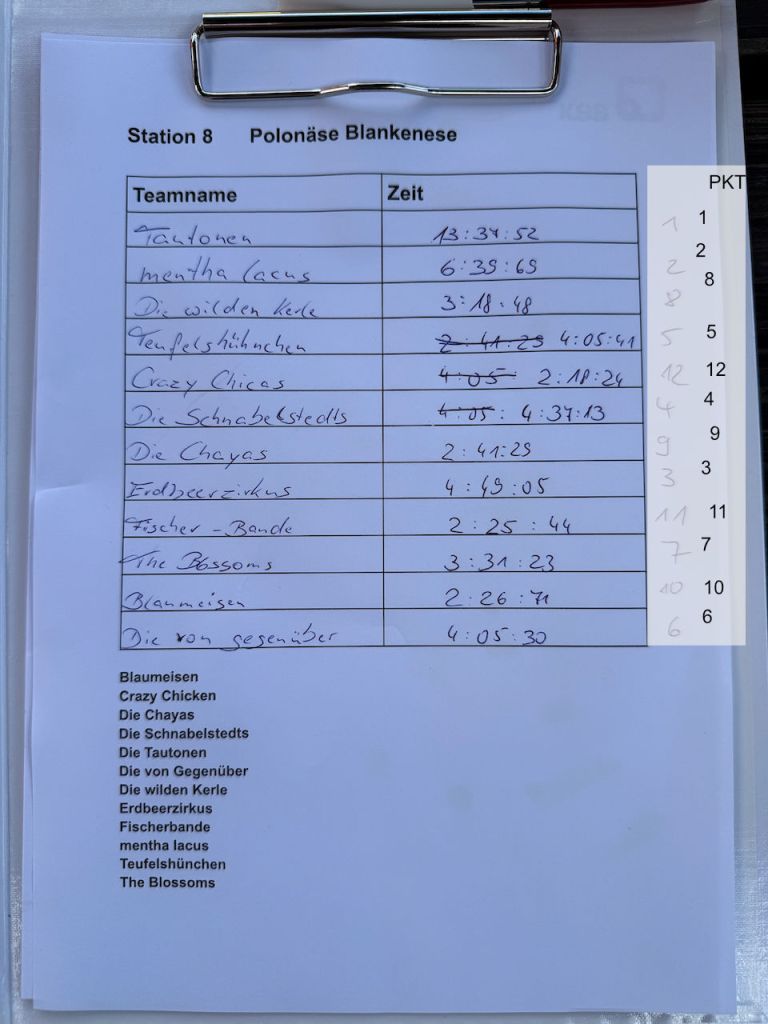 Station 8 Polonäse Blankenese
PKT
Teamname Zeit
Tautonen 13:37:52 1 1
mentha lacus 6:39:69 2 2
Die wilden Kerle 3:18:48 8 8
Teufelshühnchen 2:41:29 4:05:41 5 5
Crazy Chicas 4:05: 2:18:24 12 12
Die Schnabelstedts 4:05: 4:37:13 4 4
Die Chayas 2:41:29 9 9
Erdbeerzirkus 4:49:05 3 3
Fischer-Bande 2:25:44 11 11
The Blossoms 3:31:23 7 7
Blaumeisen 2:26:71 10 10
Die von gegenüber 4:05:30 6 6
Blaumeisen
Crazy Chicken
Die Chayas
Die Schnabelstedts
Die Tautonen
Die von Gegenüber
Die wilden Kerle
Erdbeerzirkus
Fischerbande
mentha lacus
Teufelshünchen
The Blossoms